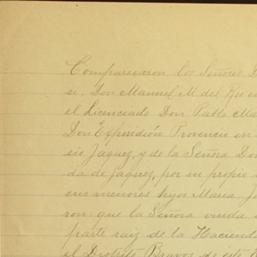 Comparecieron los Señores D
si, Don Manuel M. del
el Licenciado Don Pablo Ma
Don Expedición Provencio en
sio Jaquez, y de la Señora Don
da de Jaquez, por su propio
sus menores hijos Maria, J
ron: que la Señora viuda
parte raiz de la Hacienda
el Distrito Bravos de este